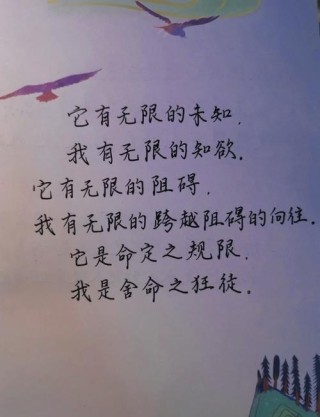 它有无限的未知.
我有无限的知欲.
它有无限的阻碍.
我有无限的跨越阻碍的向往.
它是命定之规限.
我是舍命之狂徒.